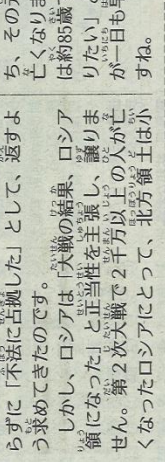 らずに「不法に占拠した」として、返すよ
う求めてきたのです。
しかし、ロシアは「大戦の結果、ロシア
領になった」と正当性を主張し、譲りま
せん。第2次大戦で2千万以上の人が亡
くなったロシアにとって、北方領土は小
ち、その元
亡くなりま
は約85歳
りたい」。
が一日も早
すね。